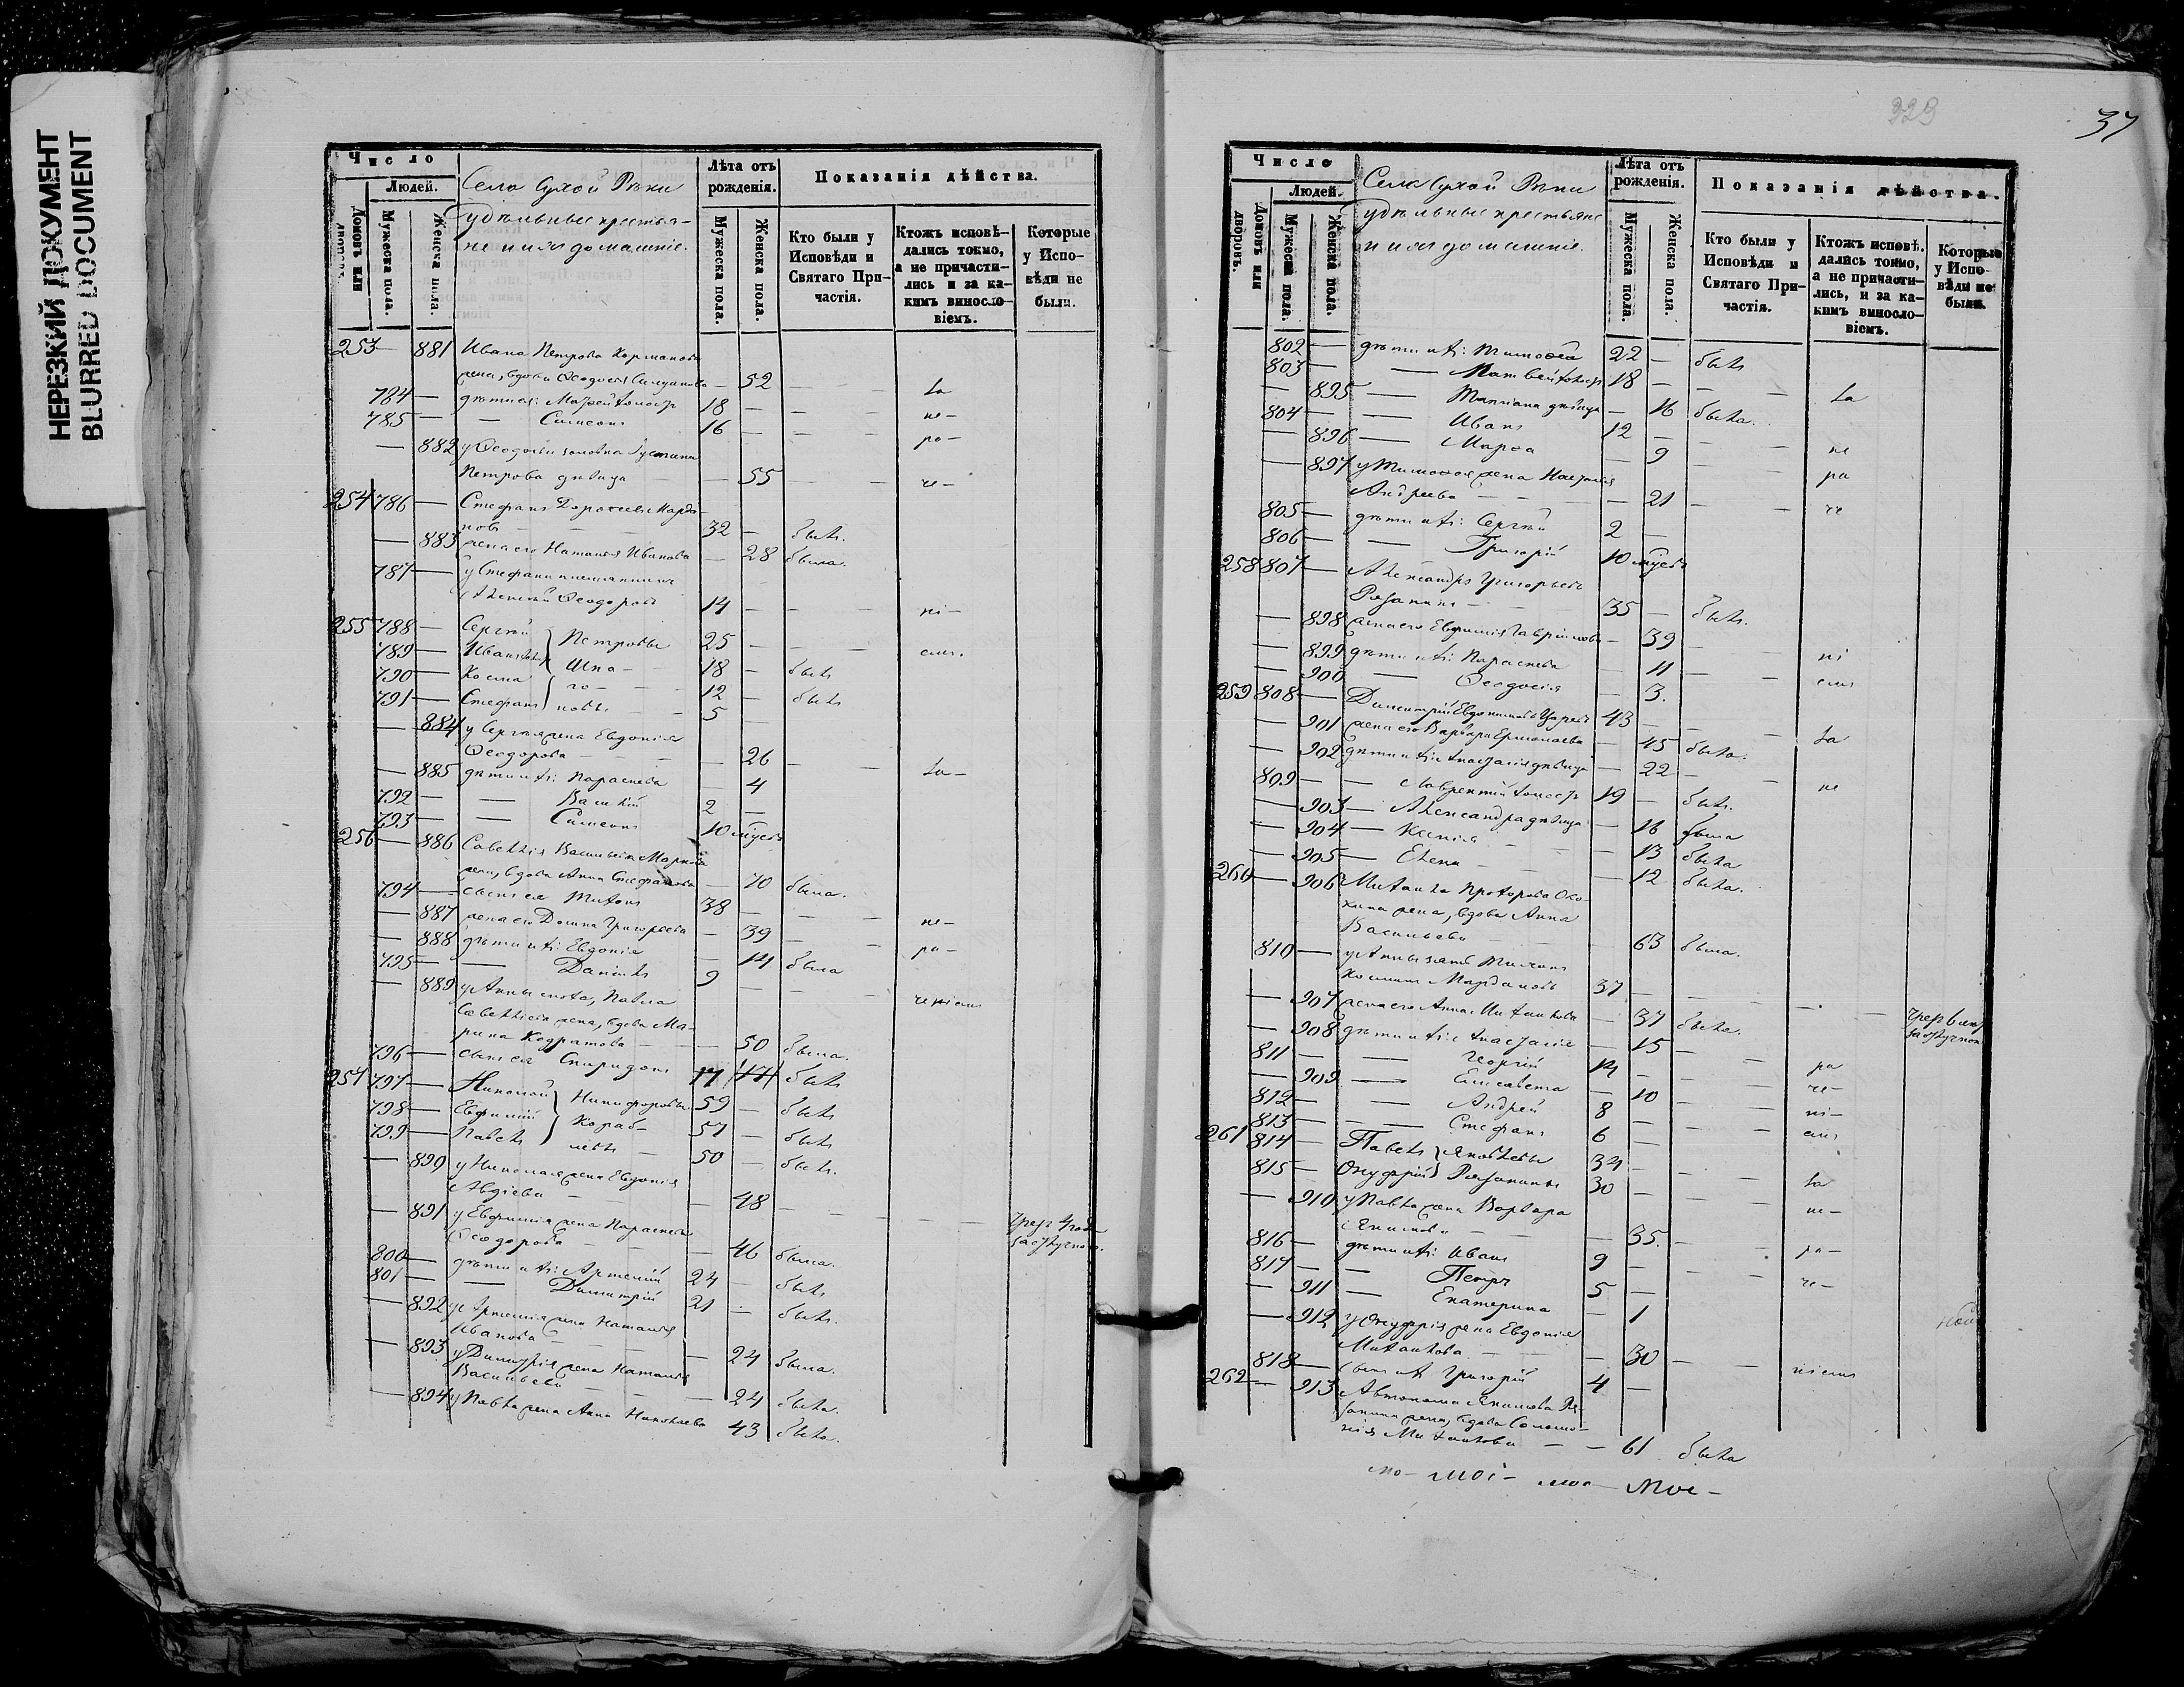 НЕРЕЗКИЙ ДОКУМЕНТ
BLURRED DOCUMENT
Число
Людей.
Домовъ или дворовъ.
Мужеска пола.
Женска пола.
Села Сухой Рѣки
удѣльные крестья-
не и ихъ домашніе.
Лѣта отъ рожденія.
Мужеска пола.
Женска пола.
Показанія дѣйства.
Кто были у Исповѣди и Святаго Причастія.
Ктожъ исповѣдались токмо, а не причастились и за какимъ винословіемъ.
Которые у Исповѣди не были.
253 — 881 Ивана Петрова
жена, вдова Ѳеодосія — 52 — — за
784 — дѣти ея: холостъ 18 — — не-
785 — — Симеонъ 16 — — ра-
— 882 у Ѳеодосіи золовка
Петрова дѣвица — 55 — — че-
254 786 — Стефанъ Дороѳеевъ Марда-
новъ 32 — былъ.
— 883 жена его Наталья Иванова — 28 была.
787 — у Стефана племянникъ
Алексѣй Ѳеодоровъ 14 — — ні-
255 788 — Сергѣй Петровы 25 — — емъ.
789 — Иванъ холостъ 18 — былъ
790 — Косма 12 — былъ
791 — Стефанъ 5 —
— 884 у Сергѣя жена Евдокія
Ѳеодорова — 26 — — за-
— 885 дѣти ихъ: Параскева — 4
792 — — Василій 2 —
793 — — Симеонъ 10 мѣсяц.
256 — 886 Савелія Васильева
жена, вдова Анна Стефанова — 70 была.
794 — сынъ ея 38 — — не-
— 887 жена его Домна Григорьева — 39 — — ра-
— 888 дѣти ихъ: Евдокія — 14 была
795 — — Даніилъ 9 — — ченіемъ
— 889 у Анны сноха, Павла
Савельева жена, вдова Ма-
рина Кодратова — 50 была.
796 — сынъ ея Спиридонъ 17 былъ
257 797 — Николай Никифоровы 59 — былъ
798 — Евфимій 57 — былъ
799 — Павелъ 50 — былъ.
— 890 у Николая жена Евдокія
Авдіева — 48 — —
— 891 у Евфимія жена Параскева
Ѳеодорова — 46 была.
800 — дѣти ихъ: Артемій 24 — былъ
801 — — Димитрій 21 — былъ.
— 892 у Артемія жена Наталья
Иванова — 24 была.
— 893 у Димитрія жена Наталья
Васильева — 24 была.
— 894 у Павла жена Анна Николаева 43 была.
329
37
Число
Людей.
Домовъ или дворовъ.
Мужеска пола.
Женска пола.
Села Сухой Рѣки
удѣльные крестьяне
и ихъ домашніе.
Лѣта отъ рожденія.
Мужеска пола.
Женска пола.
Показанія дѣйства.
Кто были у Исповѣди и Святаго Причастія.
Ктожъ исповѣдались токмо, а не причастились, и за какимъ винословіемъ.
Которые у Исповѣди не были.
802 — дѣти ихъ: Тимоѳей 22 — былъ
803 — — Матвей холостъ 18 — — за
— 895 — Татіана дѣвица — 16 была.
804 — — Иванъ 12 — — не
— 896 — Марѳа — 9 — — ра
— 897 у Тимоѳея жена Настасья
Андреева — 21 — — че
805 — дѣти ихъ: Сергѣй 2 —
806 — — Григорій 10 мѣсяц.
258 807 — Александръ Григорьевъ
Рязанинъ 35 — былъ.
— 898 жена его Евфимія Гаврилова — 39 — — ні
— 899 дѣти ихъ: Параскева — 11 — — емъ
— 900 — Ѳеодосія — 3.
259 808 — Димитрій Евдокимовъ 43 — — за
— 901 жена его Варвара Ермолаева — 45 была.
— 902 дѣти ихъ: Анастасія дѣвица — 22 — — не
809 — — Лаврентій холостъ 19 — былъ.
— 903 — Александра дѣвица — 16 была
— 904 — Ксенія — 13 была
— 905 — Елена — 12 была.
260 — 906 Михаила Прохорова
жена, вдова Анна
Васильева — 63 была.
810 — у Анны зять
Марданов 37 — —
— 907 жена его Анна Михаилова — 37 была.
— 908 дѣти ихъ: Анастасія — 15 — — ра
811 — — Георгій 14 — — че-
— 909 — Елисавета — 10 — — ні-
812 — — Андрей 8 — — емъ
813 — — Стефанъ 6 —
261 814 — Павелъ Яковлевы 34 — — за
815 — Онуфрій Рязанины 30 — — не-
— 910 у Павла жена Варвара
Якимова — 35. — — ра-
816 — дѣти ихъ: Иванъ 9 — — че-
817 — — Петръ 5 —
— 911 — Екатерина — 1
— 912 у Онуфрія жена Евдокія
Михаилова — 30 — — ніемъ
818 — сынъ ихъ Григорій 4 —
262 — 913 Автонома Якимова Ря-
занина жена, вдова Соломо-
нія Михаилова — 61 была